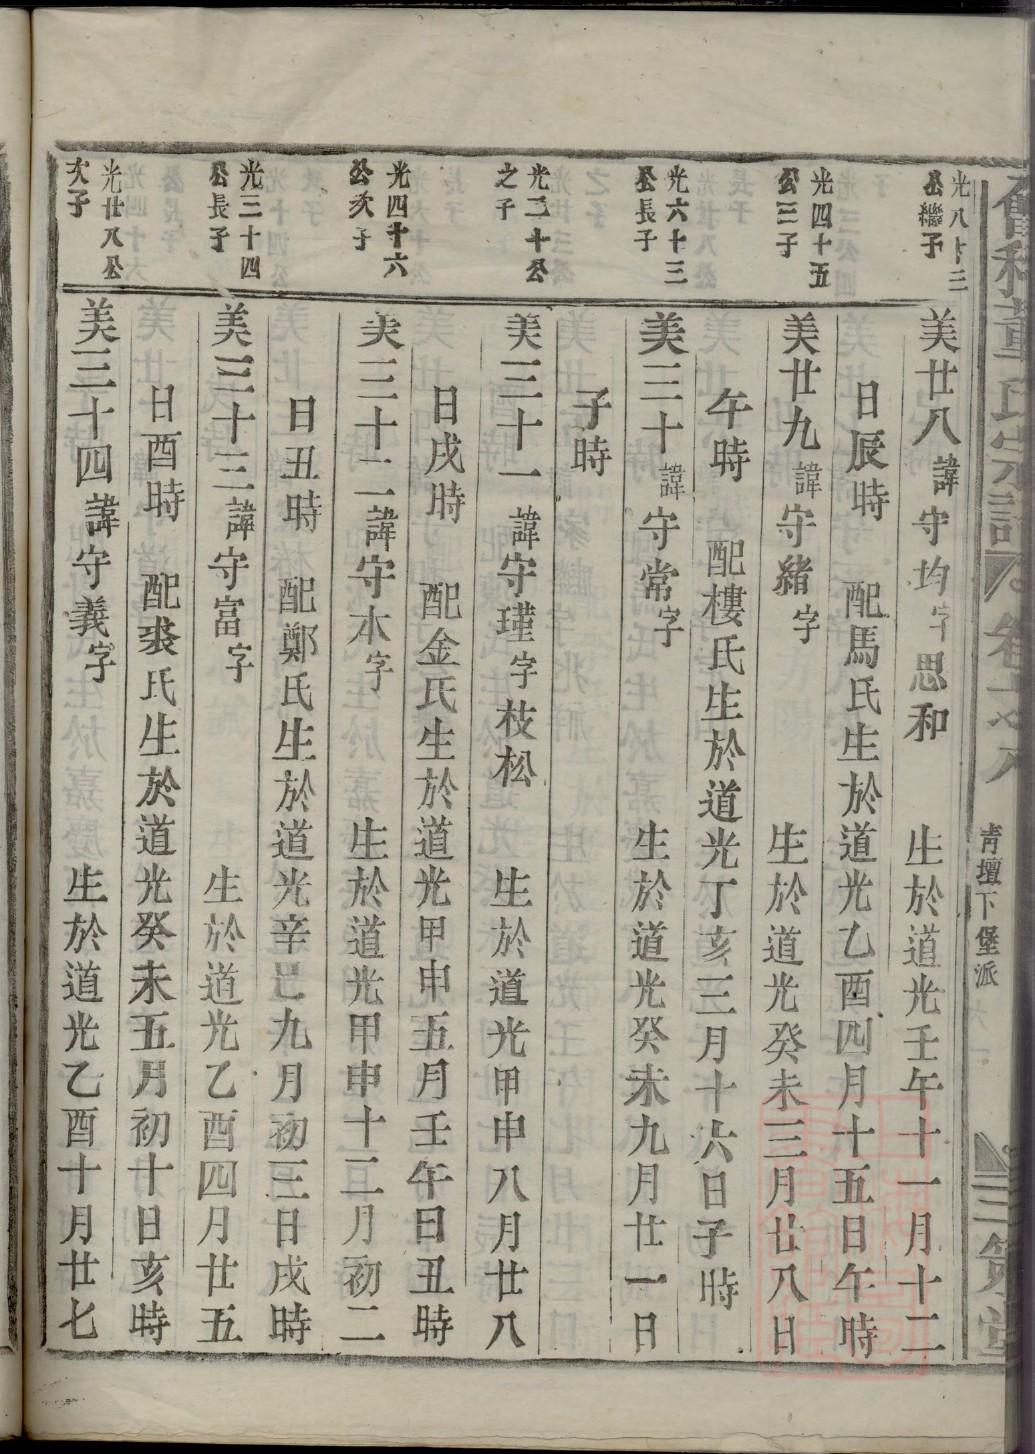 董氏宗譜
卷
青壇下堡派
三策堂
光八十三
公繼子
美廿八諱守均字思和 生於道光壬午十一月十二
日辰時 配馬氏生於道光乙酉四月十五日午時
光四十五
公三子
美廿九諱守緒字 生於道光癸未三月廿八日
午時 配樓氏生於道光丁亥三月十六日子時
光六十三
公長子
美三十諱守常字 生於道光癸未九月廿一日
子時
光二十公
之子
美三十一諱守瑾字枝松 生於道光甲申八月廿八
日戌時 配金氏生於道光甲申五月壬午日丑時
光四十六
公次子
美三十二諱守本字 生於道光甲申十二月初二
日丑時 配鄭氏生於道光辛巳九月初三日戌時
光三十四
公長子
美三十三諱守富字 生於道光乙酉四月廿五
日酉時 配裘氏生於道光癸未五月初十日亥時
光廿八公
次子
美三十四諱守義字 生於道光乙酉十月廿七